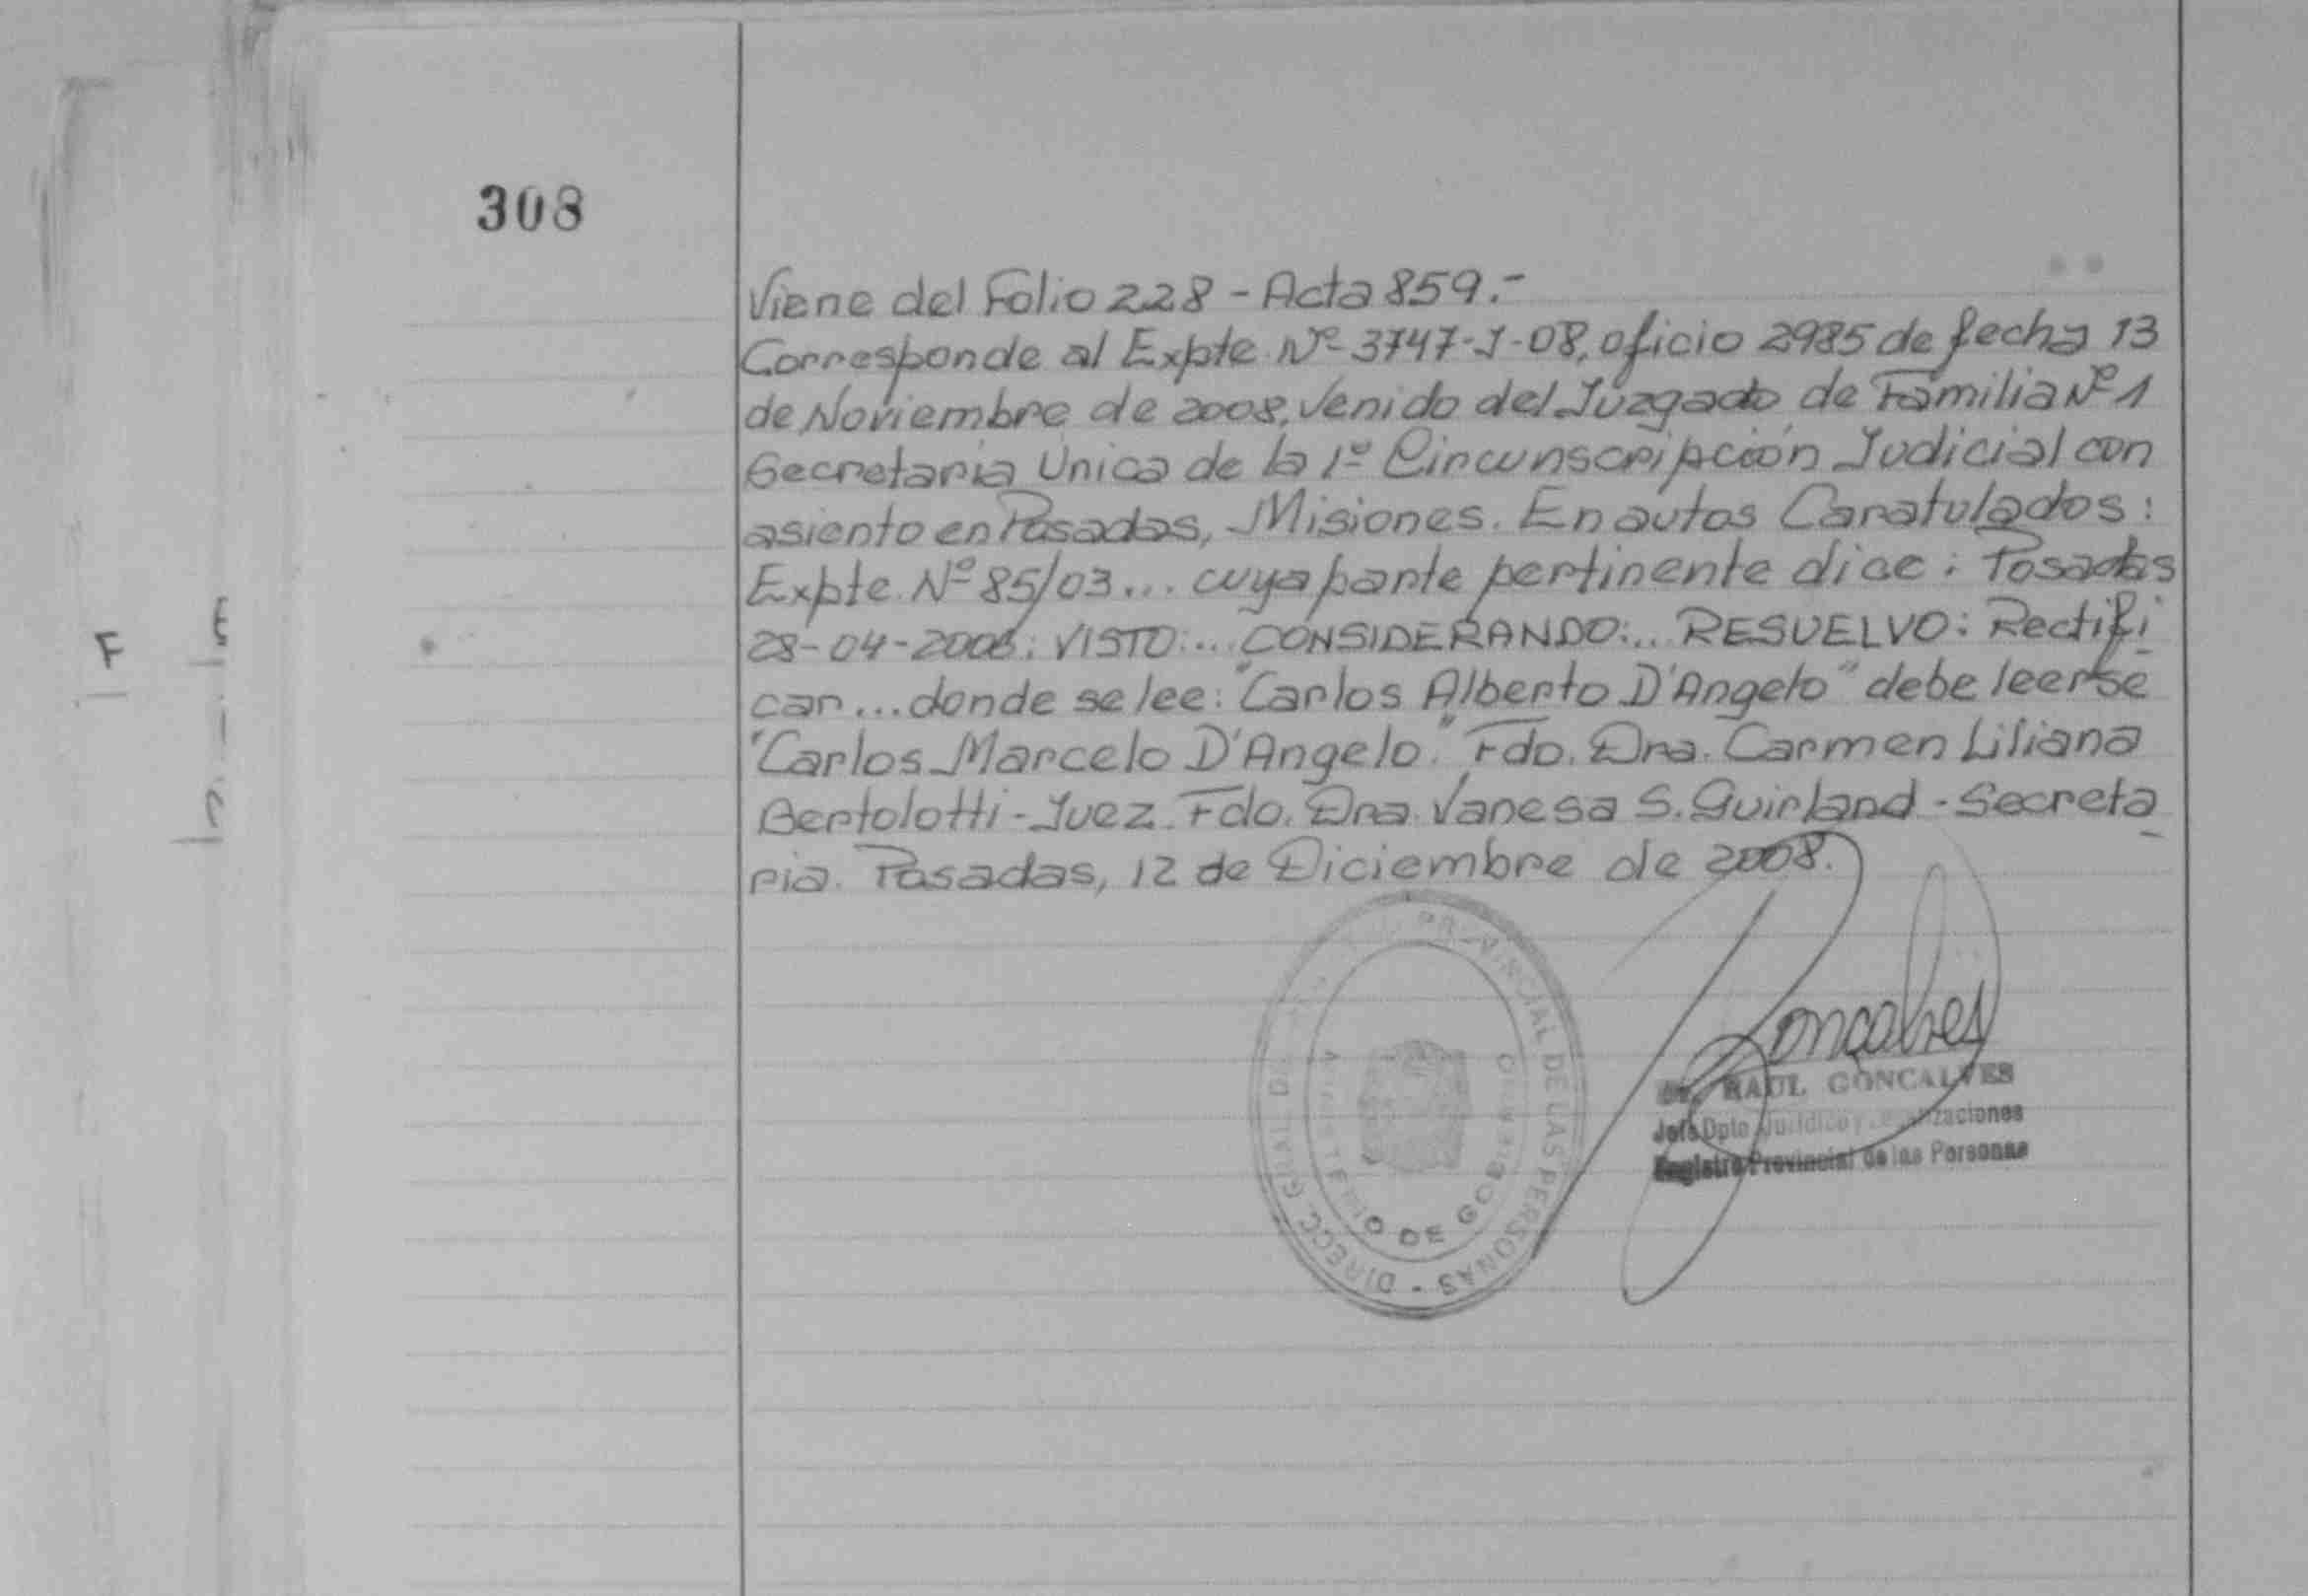 308
Viene del Folio 228 - Acta 859.-
Corresponde al Expte. Nº 3747-J-08, oficio 2985 de fecha 13
de Noviembre de 2008, Venido del Juzgado de Familia Nº 1
Secretaria Unica de la 1º Circunscripción Judicial con
asiento en Posadas, Misiones. En autos Caratulados:
Expte. Nº 85/03... cuya parte pertinente dice: Posadas
28-04-2006: VISTO:... CONSIDERANDO:... RESUELVO: Rectifi
car... donde se lee: "Carlos Alberto D'Angelo" debe leerse
"Carlos Marcelo D'Angelo." Fdo. Dra. Carmen Liliana
Bertolotti - Juez. Fdo. Dra. Vanesa S. Guirland - Secreta
ria. Posadas, 12 de Diciembre de 2008.
PROVINCIAL DE LAS PERSONAS - DIRECC. GRAL DE
MINISTERIO DE GOBIERNO
Goncalves
Dr. RAUL GONCALVES
Jefe Dpto Juridico y
Registro Provincial de las Personas
F